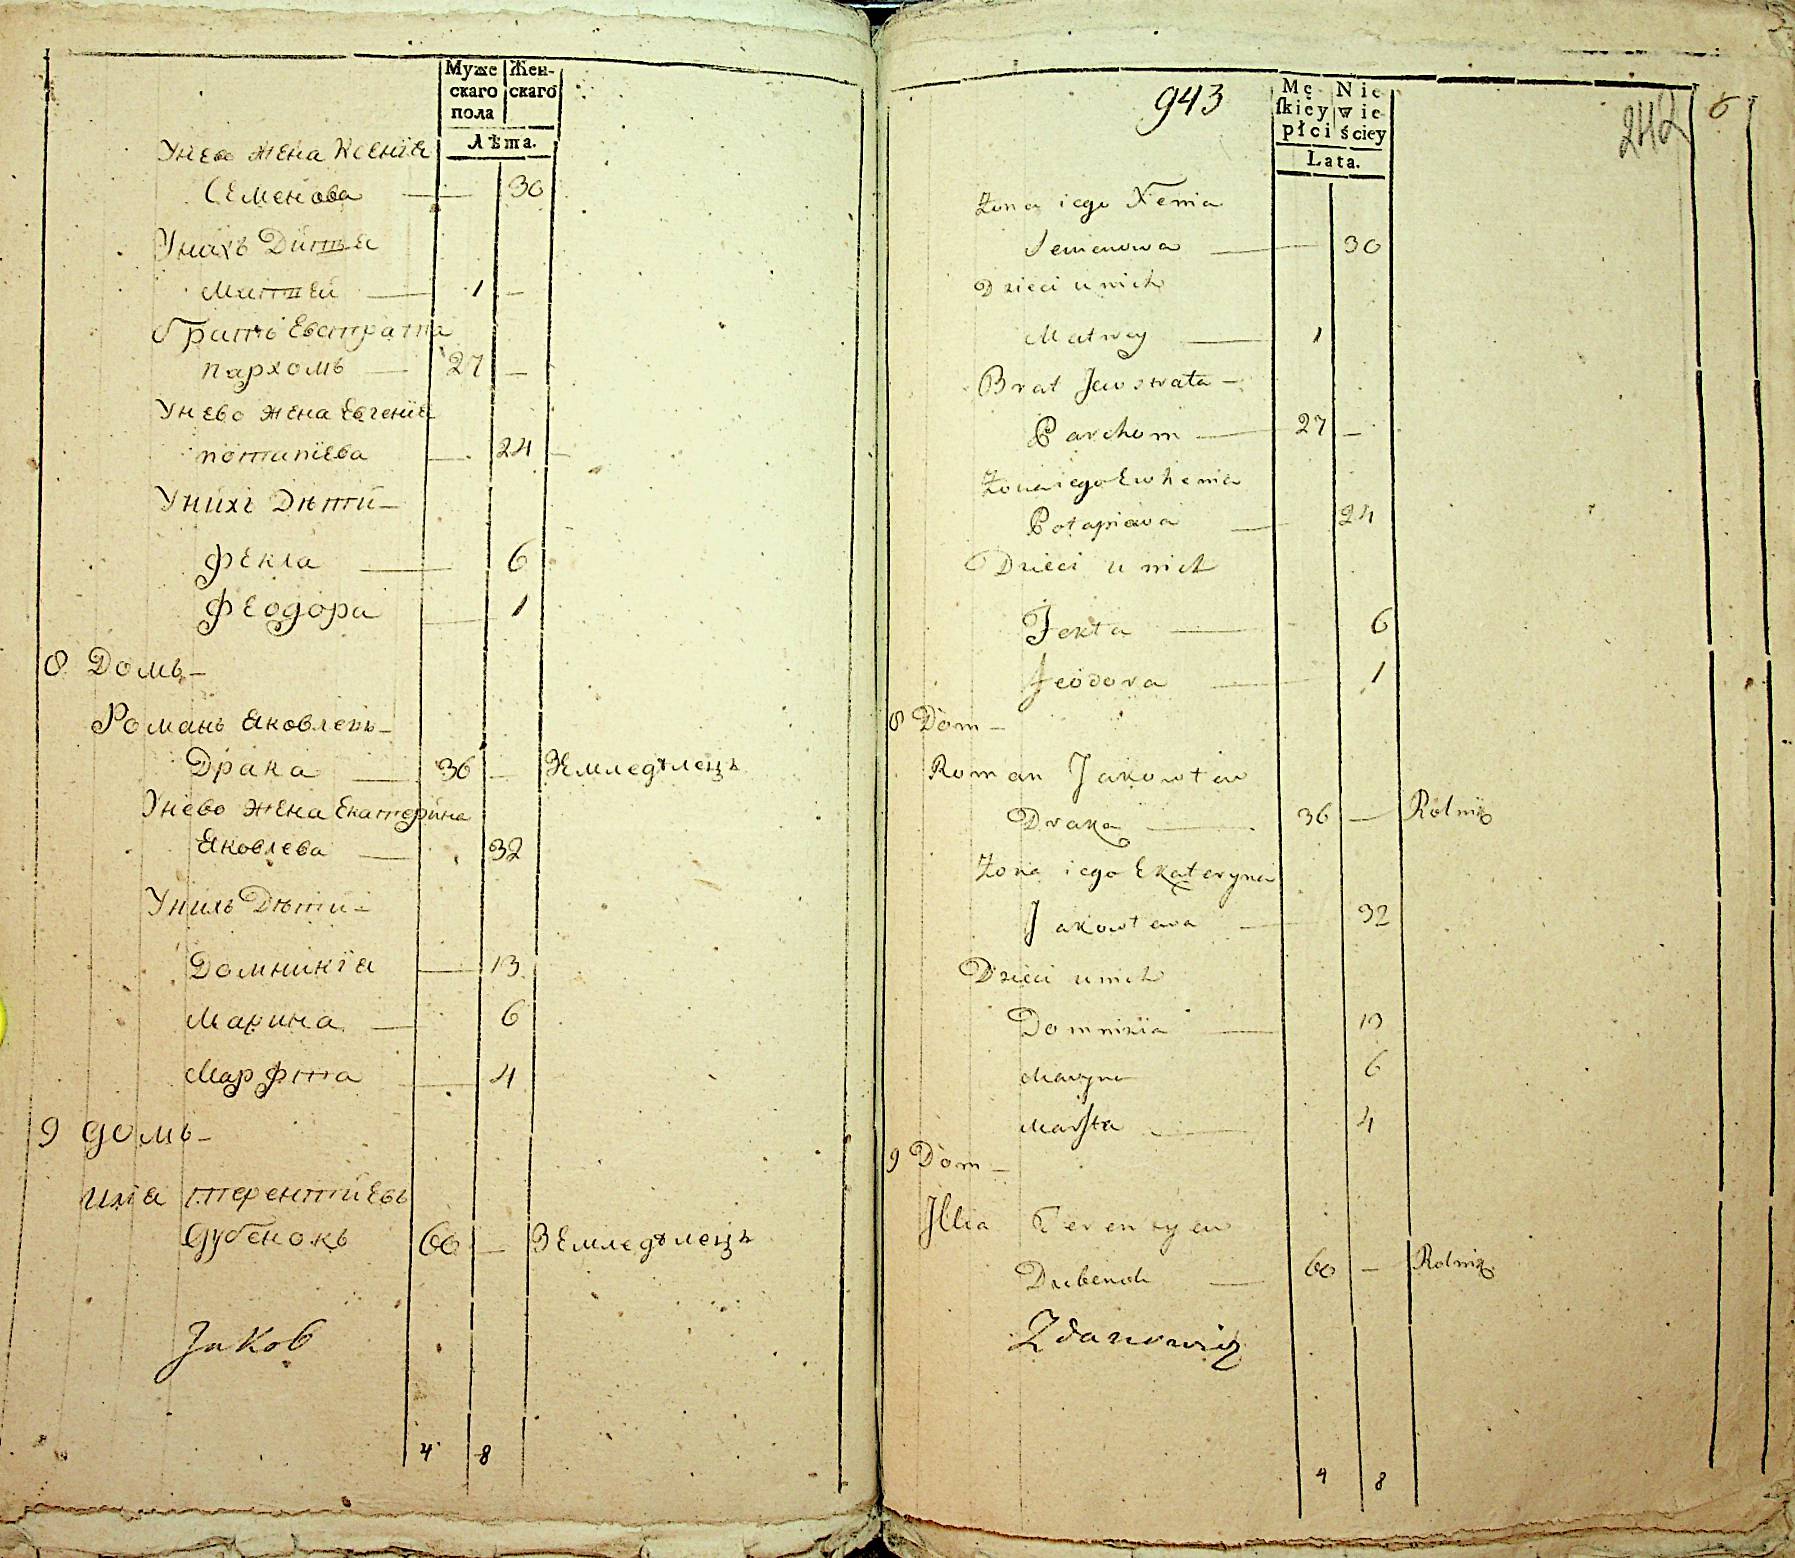 Муже Жен-
скаго скаго
пола
Лѣта.
Унево жена Ксенїя
Семенова — 30
Унихъ Дитя
Матвей — 1 —
братъ Евстрата
пархомъ — 27 —
Унево жена Евгенїя
потапїева — 24 —
Унихъ Дѣти —
Фекла — 6
Феодора — 1
8 Домъ —
Романъ Яковлевъ —
Драка — 36 — Земледѣлецъ
Унево жена Екатерина
Яковлева — 32
Унихъ Дѣти —
Домникїя — 13
Марина — 6
Марфта — 4
9 домъ —
илїя терентїевъ
дубенокъ 60 — Земледѣлецъ
Jakob
4 8
943
242
6
Mę Nie
skiey wie
płci ściey
Lata.
Żona iego Xenia
Semenowa — 30
Dzieci u nich
Matwey — 1
Brat Jewstrata —
Parchom — 27 —
Żona iego Ewhenia
Potapiawa — 24
Dzieci u nich
Fekła — 6
Feodora — 1
8 Dom —
Roman Jakowlew
Draka — 36 — Rolnik
Żona iego Ekateryna
Jakowlewa — 32
Dzieci u nich
Domnikia — 13
Maryna 6
Marfta — 4
9 Dom —
Illia Terentyew
Dubenok — 60 — Rolnik
Zdanowicz
4 8